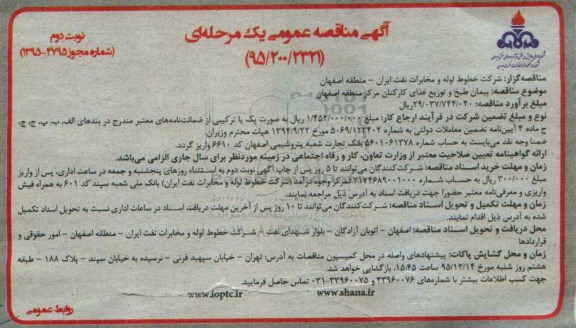 آگهی مناقصه عمومی یک مرحله‌ای
(۹۵/۲۰۰/۲۳۲۱)
نوبت دوم
(شماره مجوز ۲۷۹۵-۱۳۹۵)
مناقصه‌گزار: شرکت خطوط لوله و مخابرات نفت ایران - منطقه اصفهان
موضوع مناقصه: پیمان طبخ و توزیع غذای کارکنان مرکز منطقه اصفهان
مبلغ برآورد مناقصه: ۲۹/۰۳۷/۷۴۴/۰۴۰ ریال
نوع و مبلغ تضمین شرکت در فرآیند ارجاع کار: مبلغ ۱/۴۵۲/۰۰۰/۰۰۰ ریال به صورت یک یا ترکیبی از ضمانت‌نامه‌های معتبر مندرج در بندهای الف، ب، پ، ج، چ،
ح ماده ۴ آیین‌نامه تضمین معاملات دولتی به شماره ۱۲۳۴۰۲/ت۵۰۶۵۹ مورخ ۱۳۹۴/۹/۲۲ هیات محترم وزیران
ضمنا وجه نقد می‌بایست به حساب شماره ۵۶۰۱۰۶۱۳۷۸ بانک تجارت شعبه پتروشیمی اصفهان کد ۶۶۱۰ واریز گردد.
ارائه گواهینامه تعیین صلاحیت معتبر از وزارت تعاون، کار و رفاه اجتماعی در زمینه موردنظر برای سال جاری الزامی می‌باشد.
زمان و مهلت خرید اسناد مناقصه: شرکت‌کنندگان می‌توانند تا ۵ روز پس از چاپ آگهی نوبت دوم به استثناء روزهای پنجشنبه و جمعه در ساعات اداری، پس از واریز
مبلغ ۳۰۰/۰۰۰ ریال به حساب شماره ۲۱۷۴۶۸۹۰۰۱۰۰۰ تمرکز وجوه درآمد (شرکت خطوط لوله و مخابرات نفت ایران) بانک ملی شعبه سپند کد ۶۰۱ به همراه فیش
واریزی و معرفی‌نامه معتبر حضورا جهت دریافت اسناد به آدرس ذیل مراجعه نمایند.
زمان و مهلت تکمیل و تحویل اسناد مناقصه: شرکت‌کنندگان می‌توانند تا ۱۰ روز پس از آخرین مهلت دریافت اسناد در ساعات اداری نسبت به تحویل اسناد تکمیل
شده به آدرس ذیل اقدام نمایند.
محل دریافت و تحویل اسناد مناقصه: اصفهان - اتوبان آزادگان - بلوار شهدای نفت - شرکت خطوط لوله و مخابرات نفت ایران - منطقه اصفهان - امور حقوقی و
قراردادها
زمان و محل گشایش پاکات: پیشنهادهای واصله در محل کمیسیون مناقصات به آدرس: تهران - خیابان سپهبد قرنی - نرسیده به خیابان سپند - پلاک ۱۸۸ - طبقه
هشتم روز شنبه مورخ ۹۵/۱۲/۱۴ ساعت ۱۵:۴۵ بازگشایی خواهد شد.
جهت کسب اطلاعات بیشتر با شماره‌های ۳۳۹۶۰۰۷۶ و ۳۳۹۶۰۰۷۵-۰۳۱ تماس حاصل فرمایید.
www.shana.ir www.ioptc.ir
روابط عمومی